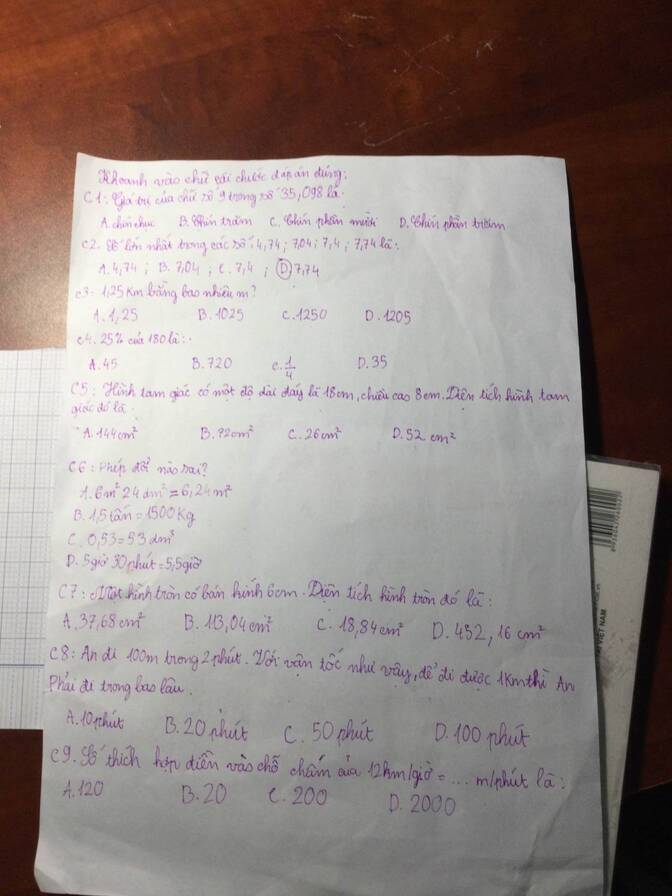 Khoanh vào chữ cái chước đáp án đúng:
C1: Giá trị của chữ số 9 trong số 35,098 là.
A. chín chục B. Chín trăm C. Chín phần mười D. Chín phần trăm
C2. Số lớn nhất trong các số: 4,74; 7,04; 7,4; 7,74 là:
A. 4,74; B. 7,04; C. 7,4; D 7,74
C3: 1,25 Km bằng bao nhiêu m?
A. 1,25 B. 1025 C. 1250 D. 1205
C4. 25% của 180 là:
A. 45 B. 720 C. 1/4 D. 35
C5: Hình tam giác có một độ dài đáy là 18cm, chiều cao 8cm. Diện tích hình tam
giác đó là
A. 144cm² B. 72cm² C. 26cm² D. 52 cm²
C6: Phép đổi nào sai?
A. 6m² 24 dm² = 6,24m²
B. 1,5 tấn = 1500Kg
C. 0,53 = 53 dm³
D. 5 giờ 30 phút = 5,5 giờ
C7: Một hình tròn có bán kính 6cm. Diện tích hình tròn đó là:
A. 37,68cm² B. 113,04cm² C. 18,84cm² D. 452,16 cm²
C8: An đi 100m trong 2 phút. Với vận tốc như vậy, để đi được 1Km thì An
Phải đi trong bao lâu.
A. 10 phút B. 20 phút C. 50 phút D. 100 phút
C9. Số thích hợp điền vào chỗ chấm của 12km/giờ = ... m/phút là:
A. 120 B. 20 C. 200 D. 2000
VIỆT NAM